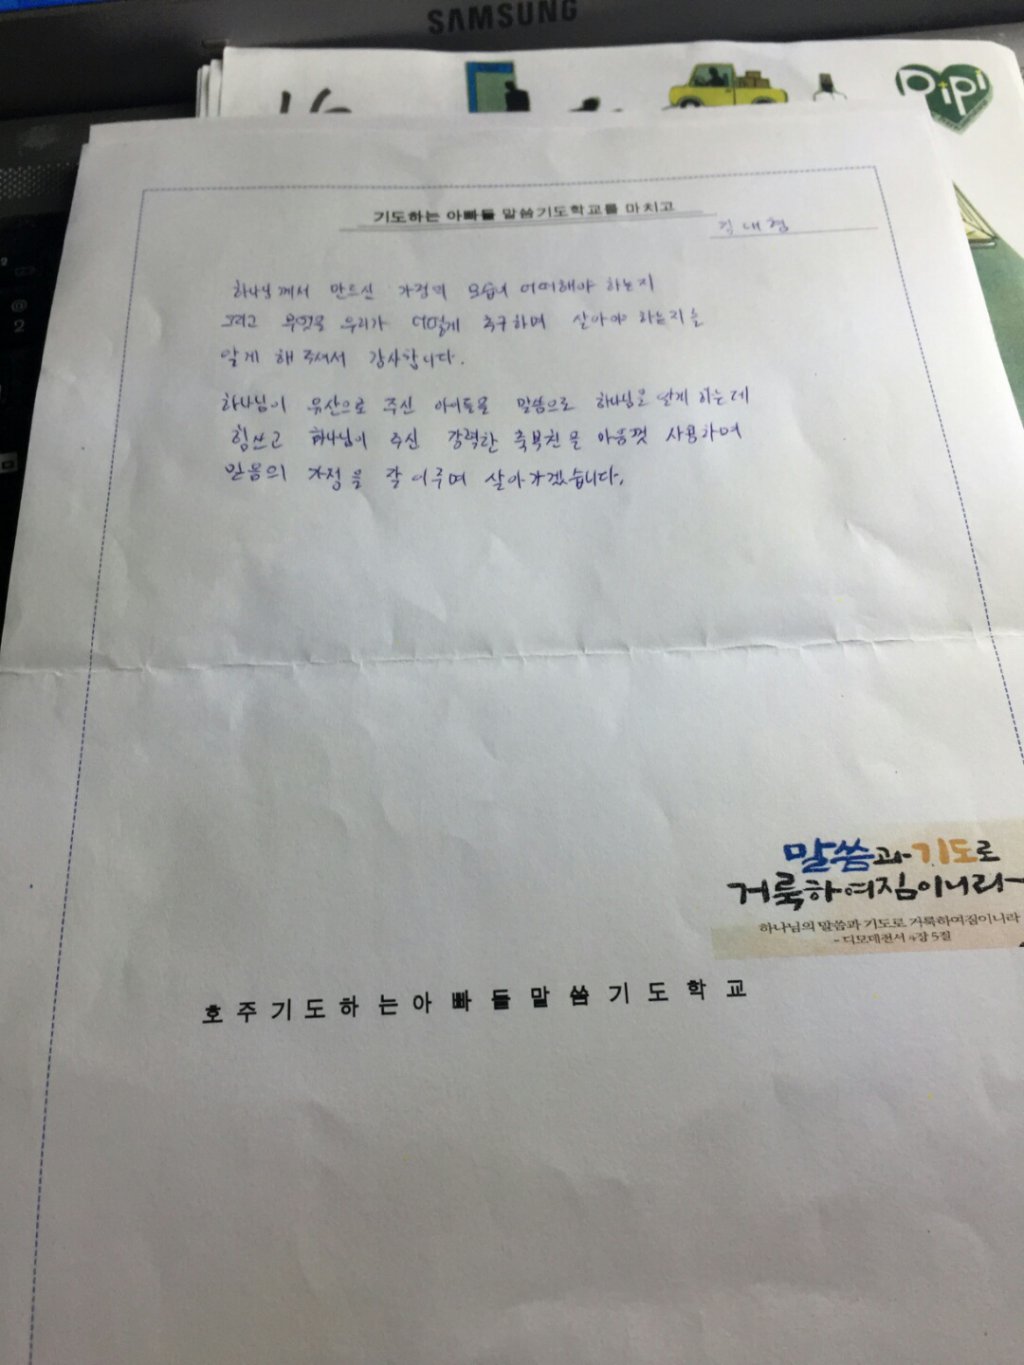 SAMSUNG
PiPi
기도하는 아빠들 말씀기도학교를 마치고
김대형
하나님께서 만드신 가정의 모습이 어떠해야 하는지
그리고 무엇을 우리가 어떻게 추구하며 살아야 하는지를
알게 해 주셔서 감사합니다.
하나님이 유산으로 주신 아이들을 말씀으로 하나님을 알게 하는데
힘쓰고 하나님이 주신 강력한 축복권을 마음껏 사용하며
믿음의 가정을 잘 이루며 살아가겠습니다.
말씀과 기도로
거룩하여짐이니라
하나님의 말씀과 기도로 거룩하여짐이니라
- 디모데전서 4장 5절
호주기도하는아빠들말씀기도학교